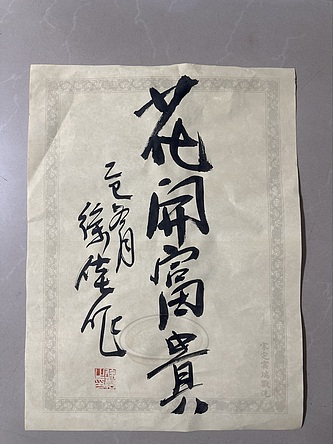 花開富貴
乙巳冬月
徐 作